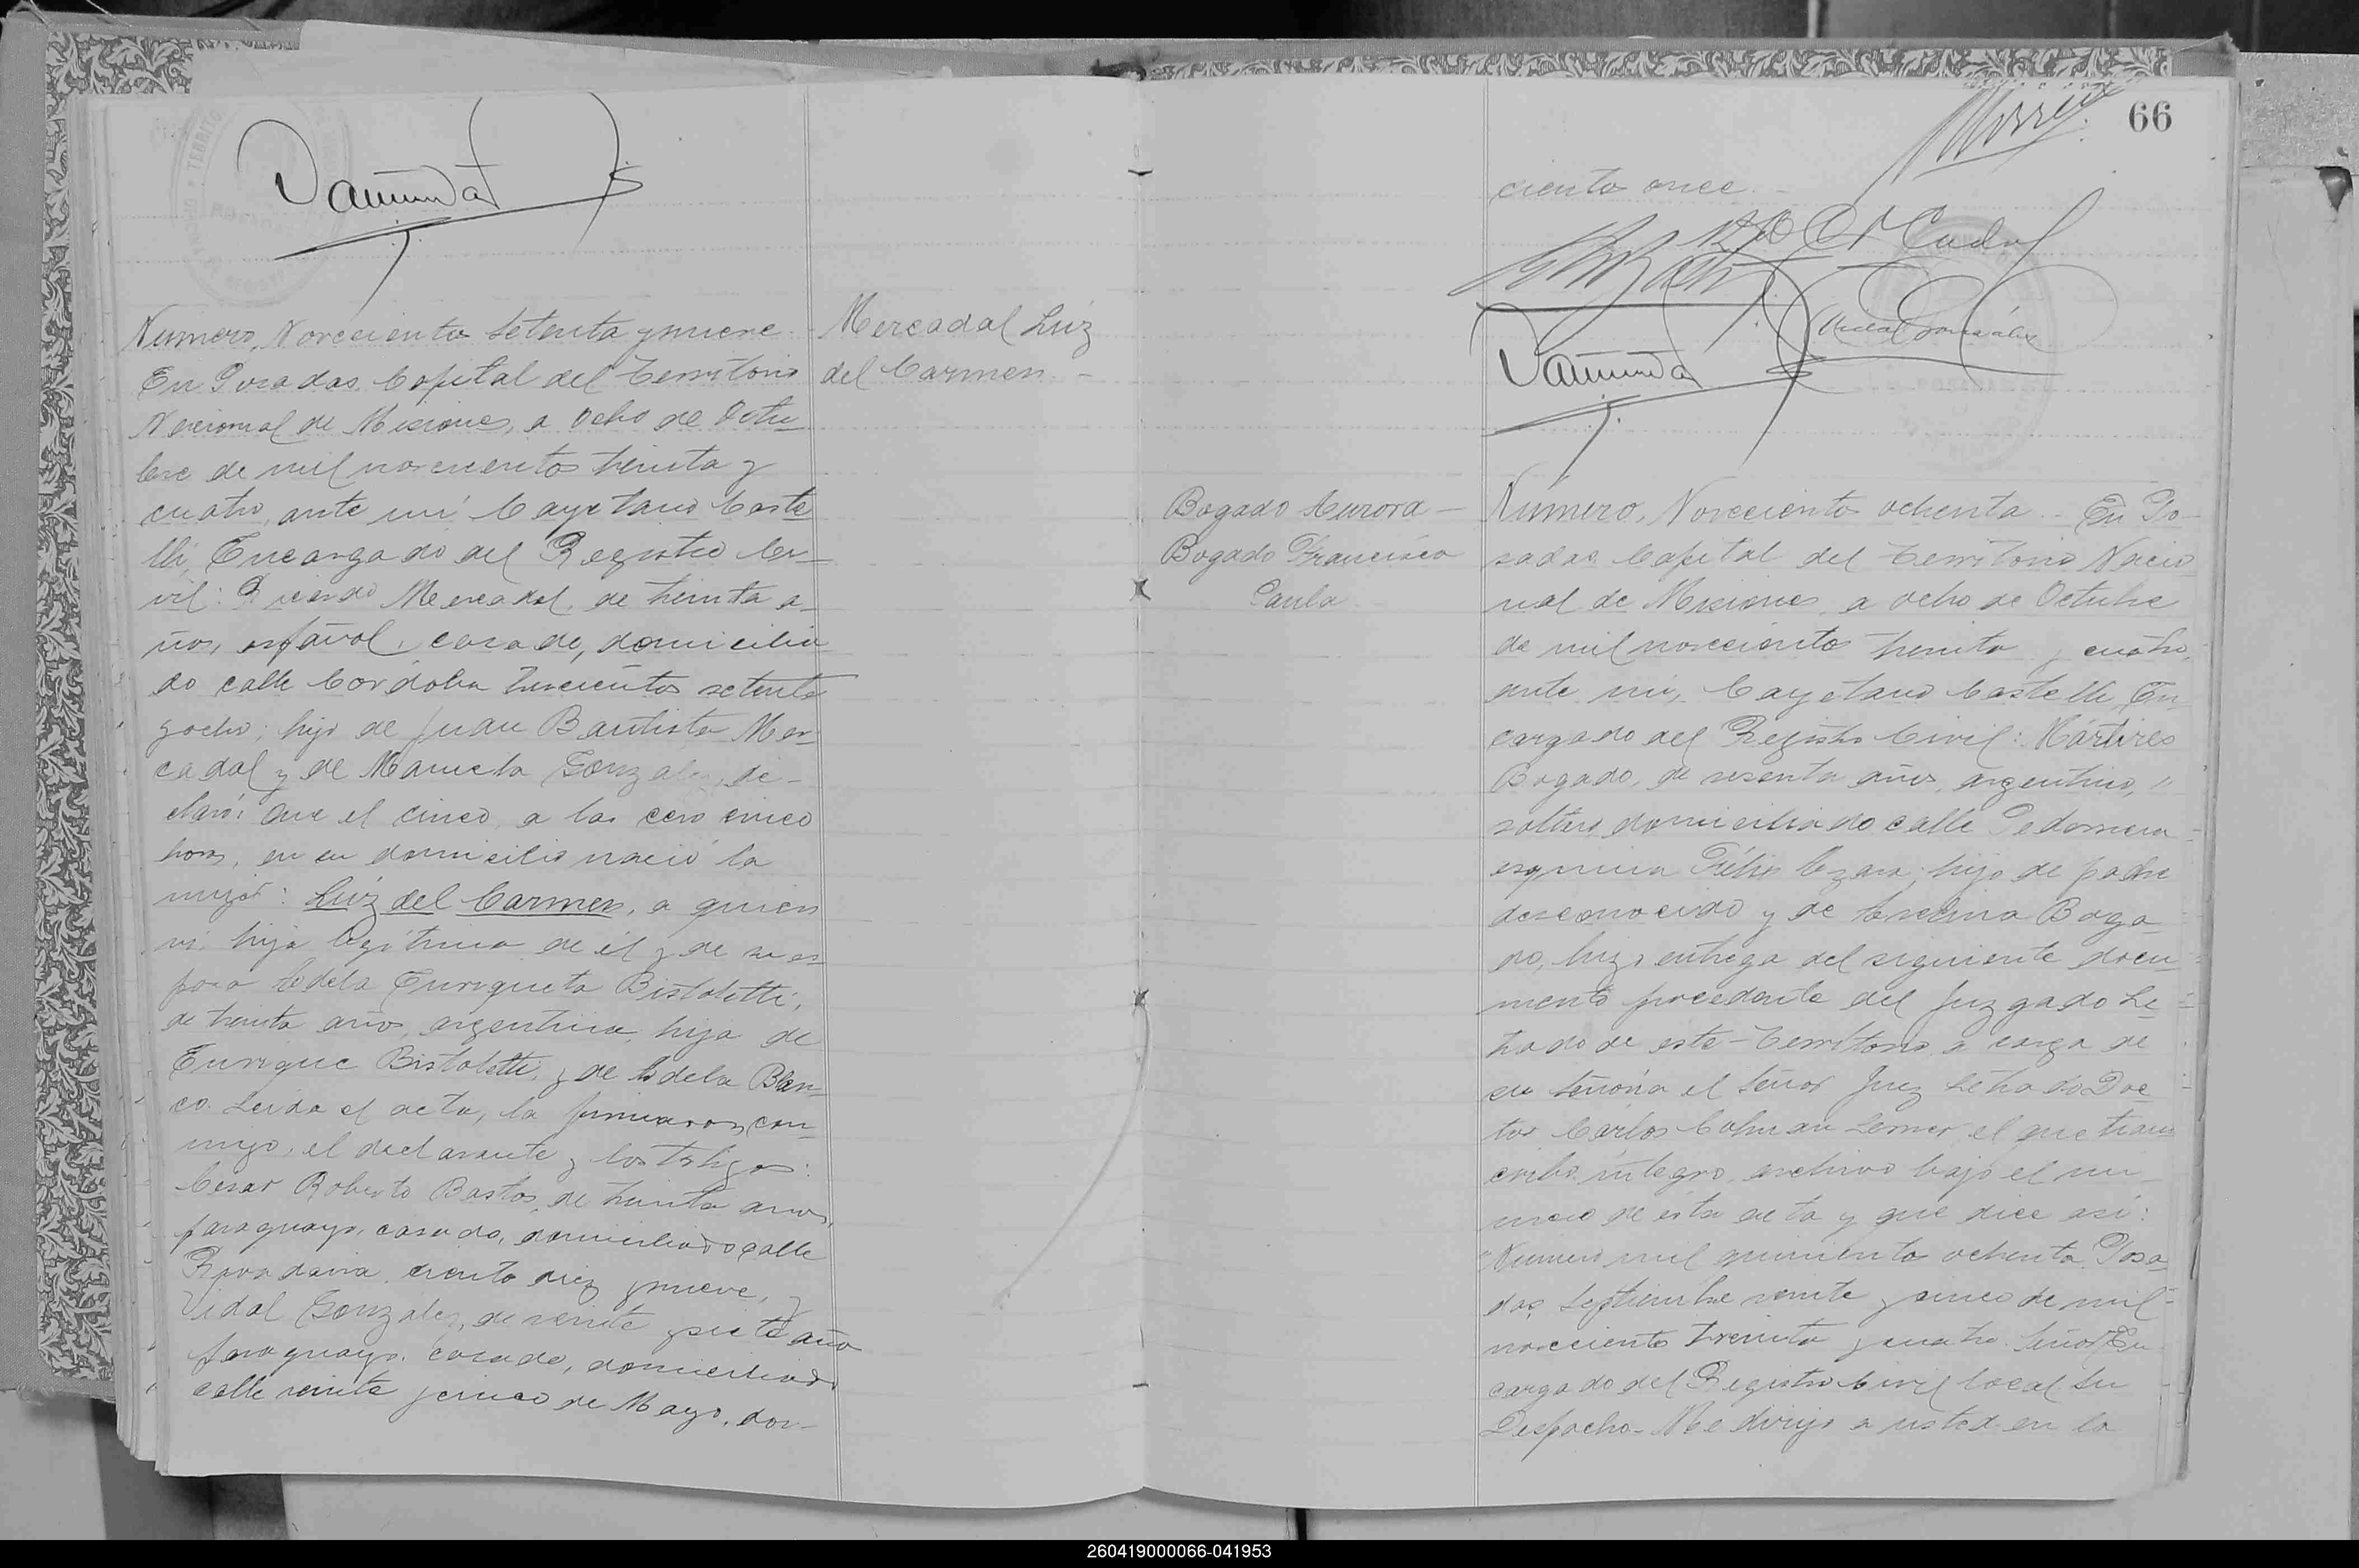 Numero, Novecientos setenta y nueve.
En Posadas Capital del Territorio
Nacional de Misiones, a ocho de Octu
bre de mil novecientos treinta y
cuatro, ante mi Cayetano Caste
lli, Encargado del Registro Ci-
vil: Ricardo Mercadal, de treinta a-
ños, español, casado, domicilia
do calle Cordoba trescientos setenta
y ocho; hijo de Juan Bautista Mer
cadal y de Manuela Gonzalez, de-
claró: Que el cinco, a las cero cinco
horas, en su domicilio nació la
mujer: Luiz del Carmen, a quien
vi, hija legitima de él y de su es
posa Enriqueta Bistoletti,
de treinta años, argentina, hija de
Enrique Bistoletti, y de Blan
co. Leida el acta, la firmaron con
migo, el declarante y los testigos:
Cesar Roberto Bastos, de treinta años,
paraguayo, casado, domiciliado calle
Rivadavia ciento diez y nueve, y
Vidal Gonzalez, de veinte y siete años
paraguayo, casado, domiciliado
calle veinte y cinco de Mayo, dos-
Mercadal Luiz
del Carmen -
66
ciento once. -
Bogado Aurora -
Bogado Francisco
Paula
Número, Novecientos ochenta. - En Po-
sadas Capital del Territorio Nacio
nal de Misiones, a ocho de Octubre
de mil novecientos treinta y cuatro,
ante mi, Cayetano Castelli, En
cargado del Registro Civil: Mártires
Bogado, de sesenta años, argentino,
soltero, domiciliado calle Pedernera
esquina Félix Azara, hijo de padre
desconocido y de Boga
do, hizo entrega del siguiente docu
mento procedente del Juzgado Le
trado de este Territorio a cargo de
su señoria el Señor Juez Letrado Doc
tor Carlos el que trans
cribo integro, archivo bajo el nú-
mero de esta acta y que dice asi:
"Numero mil quinientos ochenta. Posa
das, Septiembre veinte y cinco de mil
novecientos treinta y cuatro. Señor En
cargado del Registro Civil local Su
Despacho. - Me dirijo a usted en la
260419000066-041953